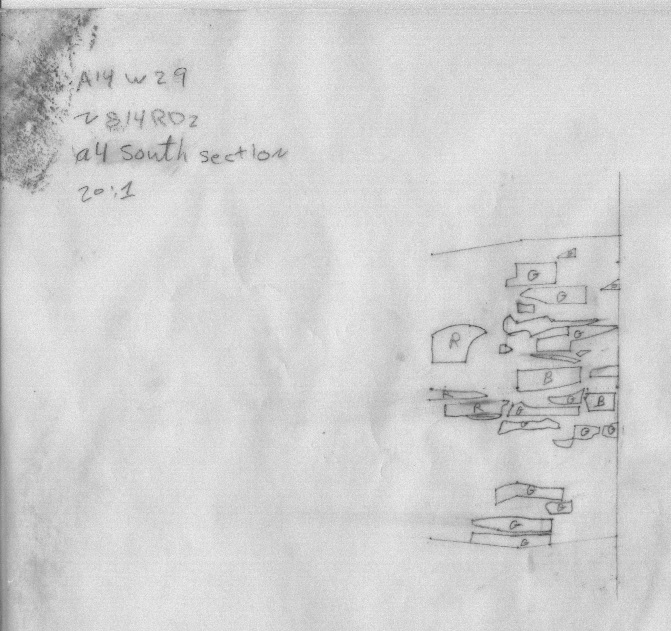 A14 W29
N 814 RD2
a4 South section
20:1
G
G
G
R
B
G
B
R
R
G
G
G
G
G
G
G
G